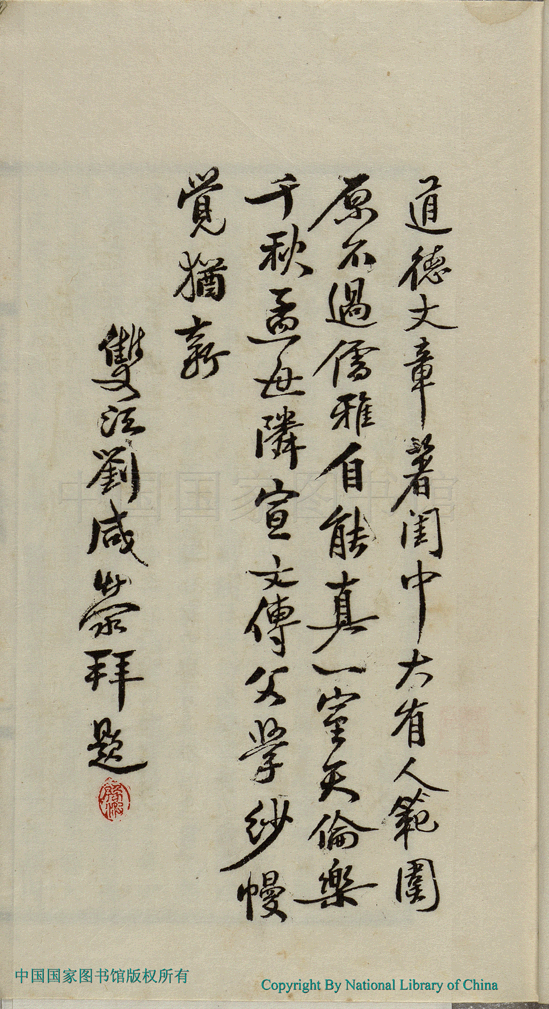 道德文章著閨中大有人範圍
原不過儒雅自能真一室天倫樂
千秋孟母隣宣文傳父學紗幔
覺猶新
雙江劉咸滎拜題
中国国家图书馆
中国国家图书馆版权所有
Copyright By National Library of China